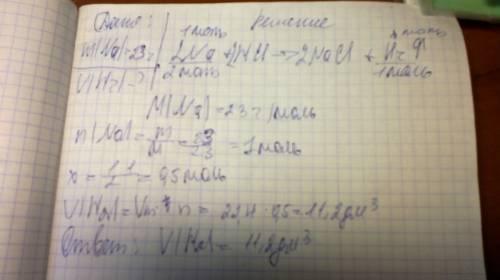 Дано: Решение
1моль x моль
m(Na)=23г 2Na + 2HCl -> 2NaCl + H₂↑
V(H₂)-? 2моль 1моль
M(Na)=23г/моль
n(Na)= m/M = 23/23 = 1моль
x = 1·1/2 = 0,5 моль
V(H₂)=Vm * n = 22,4 · 0,5 = 11,2дм³
Ответ: V(H₂) = 11,2дм³